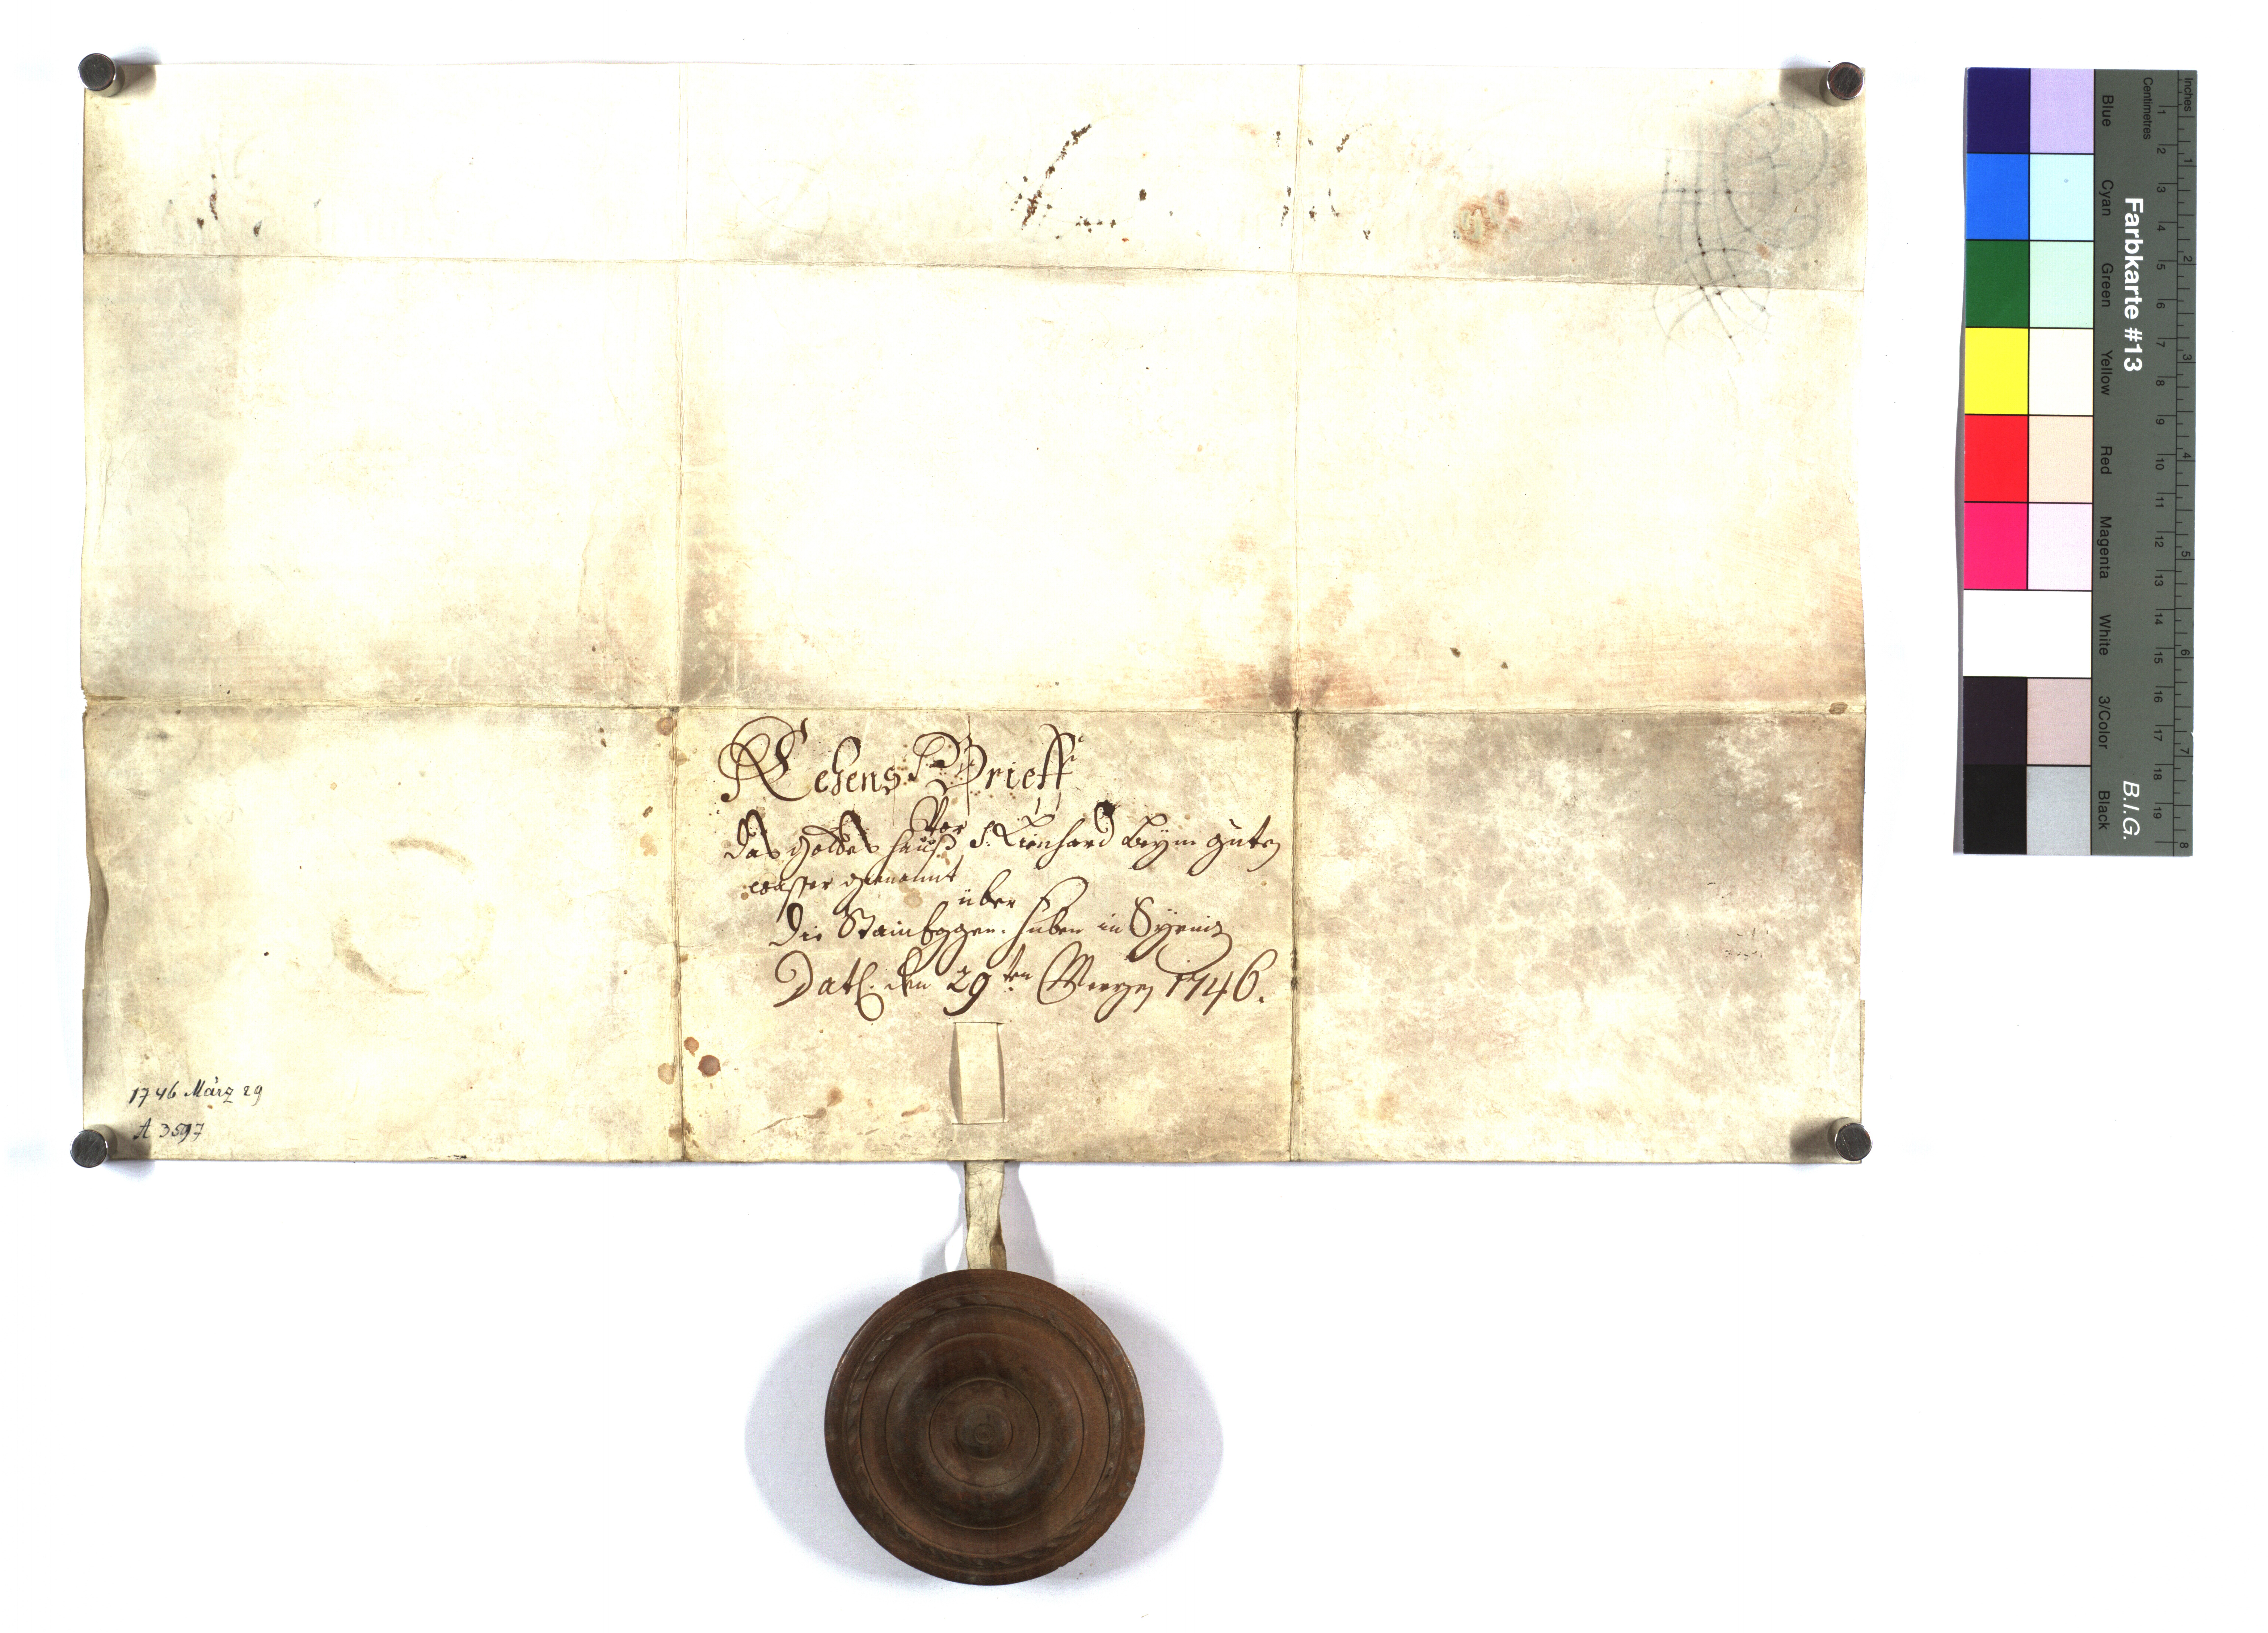 Lehens Brieff
Vor
das gottes hauß S: Lienhard beym guten
wasser genannt
über
die Stain huben in
Datl. den 29ten Mertzen 1746.
1746 März 29
A 3597
Farbkarte #13
B.I.G.
Inches
Centimetres
Blue
Cyan
Green
Yellow
Red
Magenta
White
3/Color
Black
1 2 3 4 5 6 7 8 9 10 11 12 13 14 15 16 17 18 19
1 2 3 4 5 6 7 8